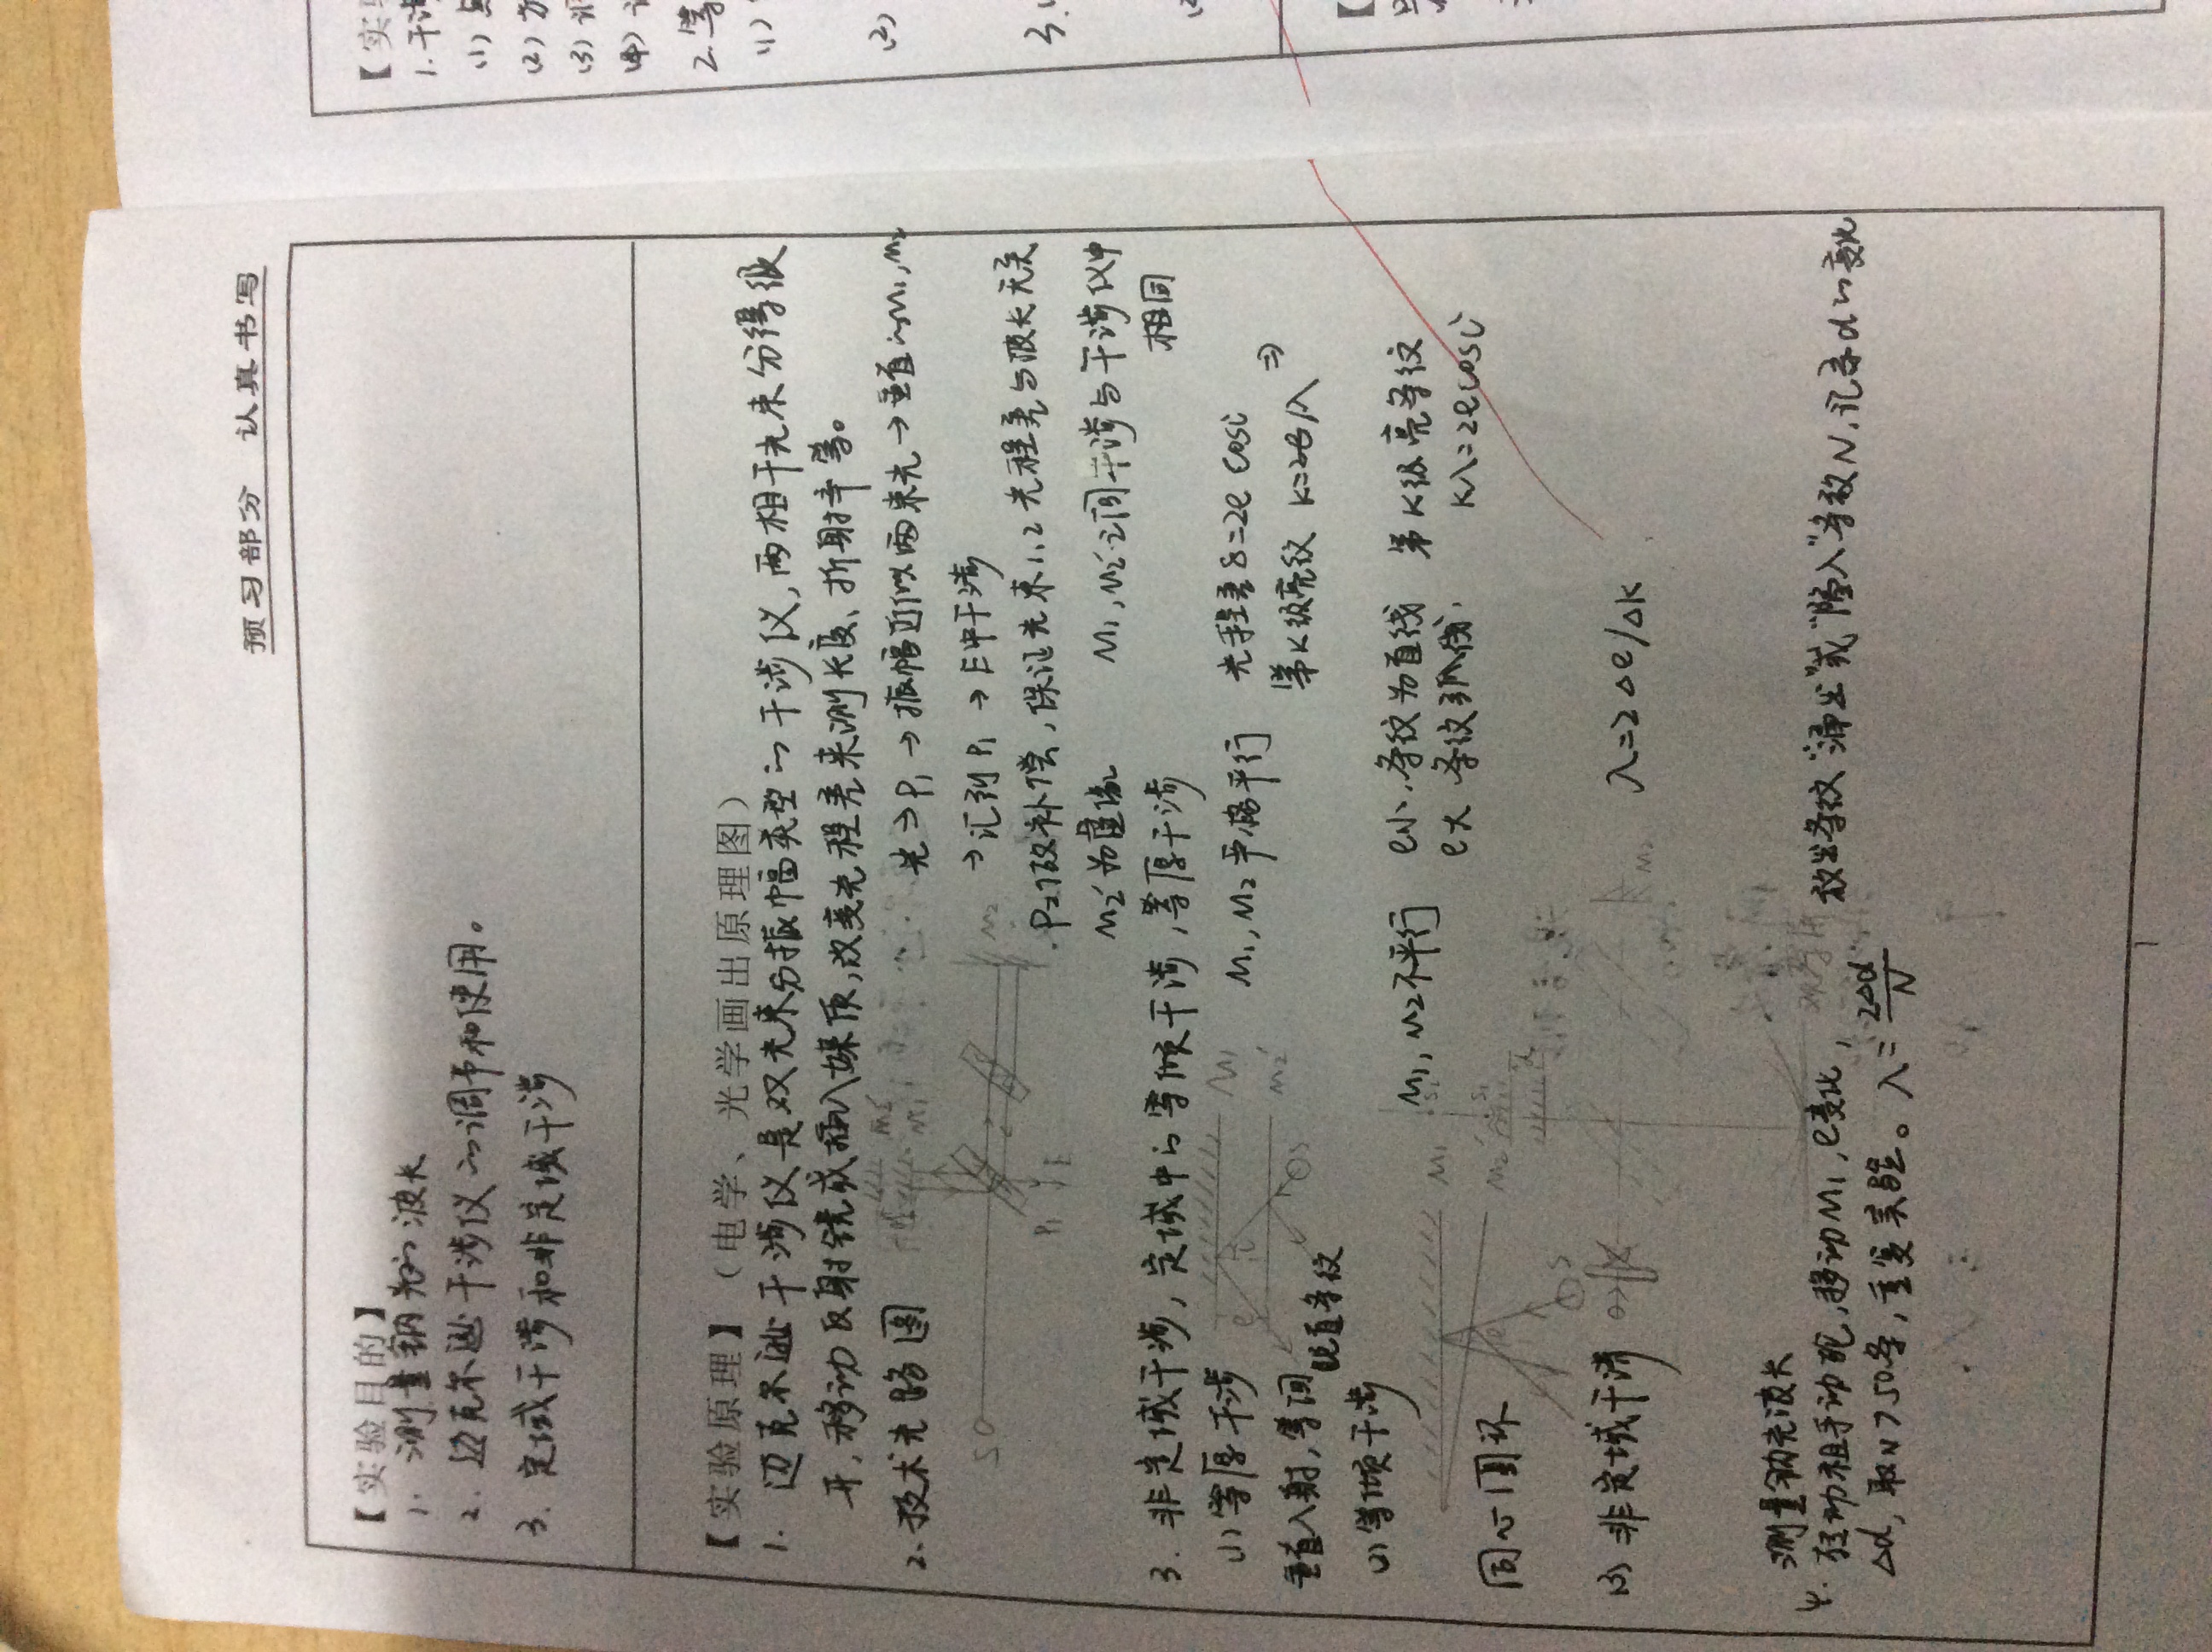 预习部分 认真书写
【实验目的】
1. 测量钠光的波长
2. 迈克尔逊干涉仪的调节和使用。
3. 定域干涉和非定域干涉
【实验原理】（电学、光学画出原理图）
1. 迈克尔逊干涉仪是双光束分振幅类型的干涉仪,两相干光束分得很
开,移动反射镜或插入媒质,改变光程差来测长度、折射率等。
2. 技术光路图
M2′
M1
S
M2
P1
E
光→P1→振幅近似两束光→垂直的M1,M2
→汇到P1→E中干涉
P2做补偿,保证光束1,2光程差与波长无关
M2′为虚像 M1,M2′之间干涉与干涉仪中
相同
3. 非定域干涉,定域中的等倾干涉,等厚干涉
(1) 等厚干涉
e
i
M1
M2′
S
M1,M2严格平行 光程差δ=2e cosi
第K级亮纹 K=2e/λ ⇒
垂直入射,等间
距直条纹
(2) 等倾干涉
M1
M2
S
M1,M2不平行 e小,条纹为直线 第K级亮条纹
e大 条纹弧线, Kλ=2ecosi
同心圆环
(3) 非定域干涉
S2
S1
d
M2
λ=2Δe/ΔK
观察屏
测量钠光波长
4. 转动粗手动轮,移动M1,e变化, 放出条纹“涌出”或“陷入”条数N,记录d的变化
Δd,取N>50条,重复实验。λ=2Δd/N
1
【实
1. 干涉
(1)
(2)
(3)
(4)
2. 等
(1)
(2)
3.
【